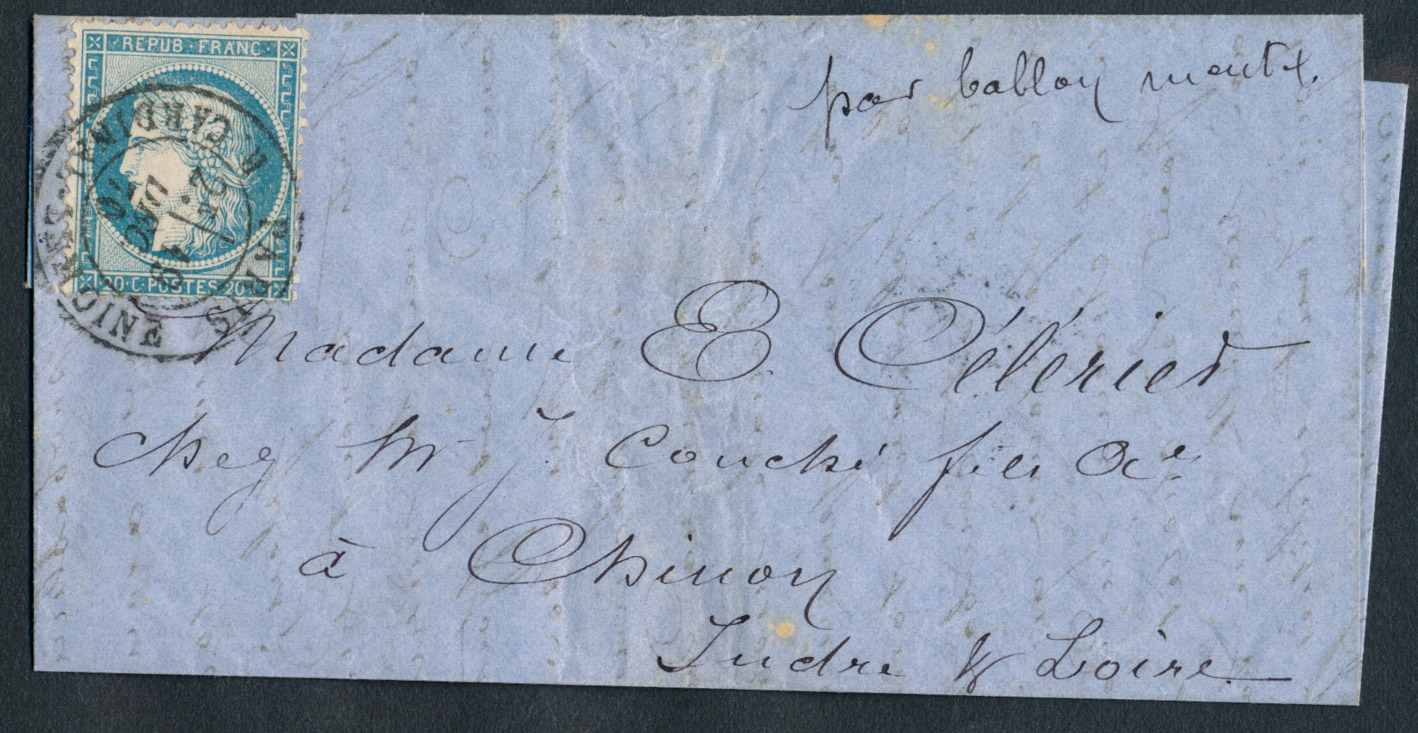 REPUB·FRANC·
20·C·POSTES·20·C
PARIS
R CARDINAL-
70
par ballon monté.
Madame E. Célérier
chez Mr J. Couché fils &
à Chinon
Indre & Loire